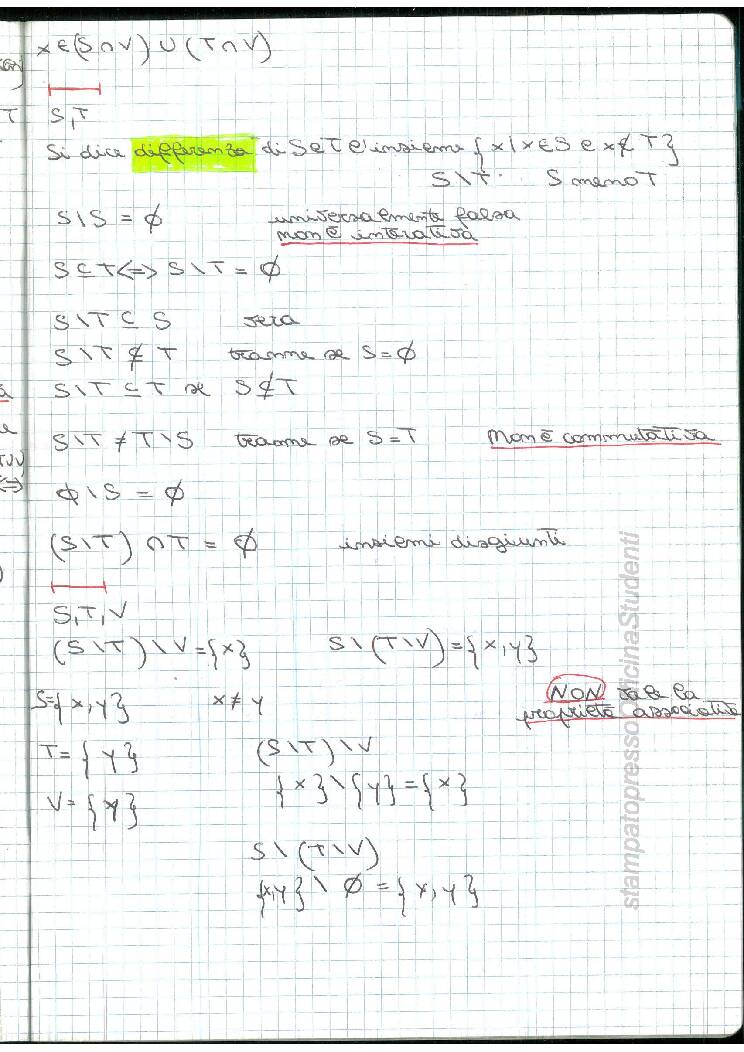 x ∈ (S ∩ V) ∪ (T ∩ V)
S, T
Si dice differenza di S e T l'insieme { x | x ∈ S e x ∉ T }
S \ T S meno T
S \ S = ∅ universalmente falsa
non è iterativa
S ⊆ T <=> S \ T = ∅
S \ T ⊆ S vera
S \ T ⊈ T tranne se S = ∅
S \ T ⊆ T se S ⊈ T
S \ T ≠ T \ S tranne se S = T non è commutativa
∅ \ S = ∅
(S \ T) ∩ T = ∅ insiemi disgiunti
S, T, V
(S \ T) \ V = {x} S \ (T \ V) = {x, y}
S = {x, y} x ≠ y NON vale la
proprietà associativa
T = {y} (S \ T) \ V
{x} \ {y} = {x}
V = {y}
S \ (T \ V)
{x, y} \ ∅ = {x, y}
stampatopressoOfficinaStudenti